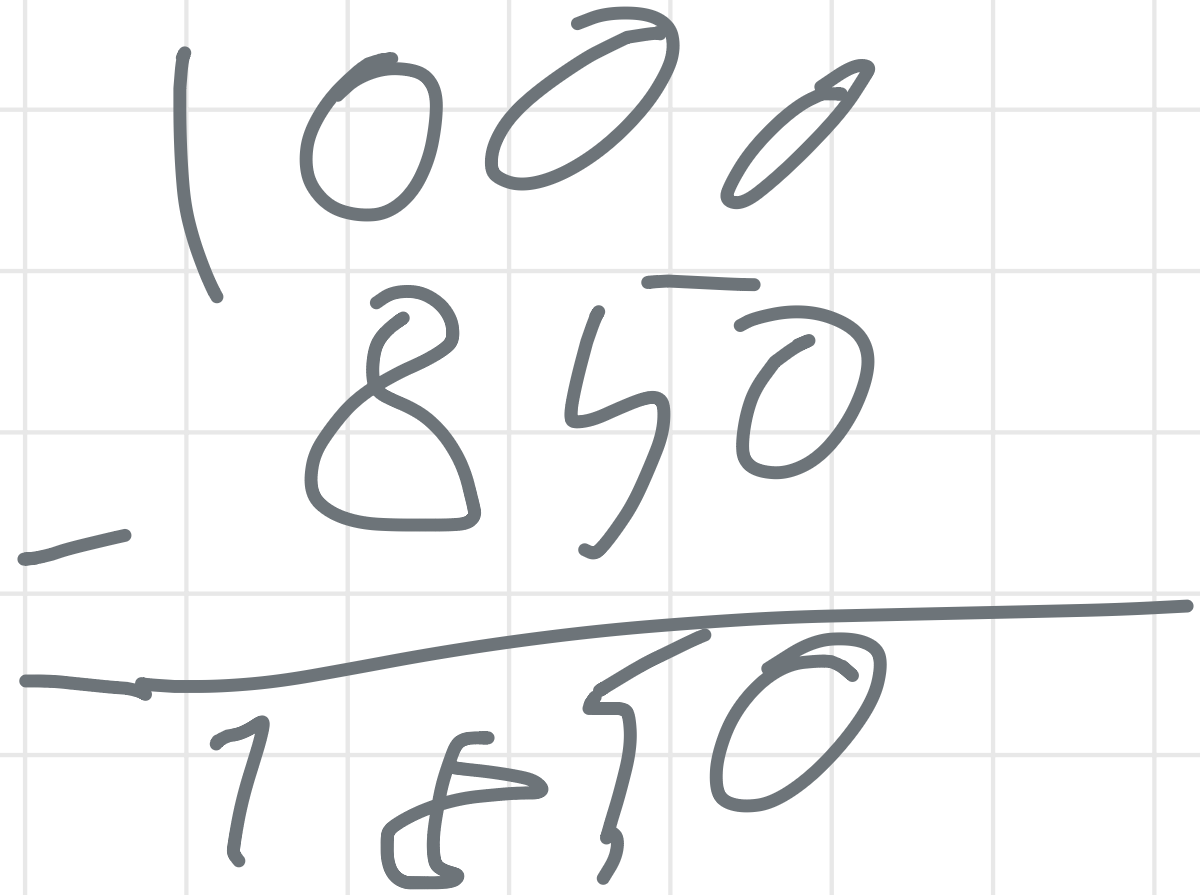 1000
- 850
1850